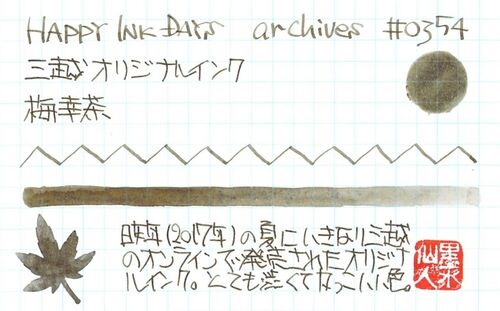 HAPPY INK DAYS archives #0354
三越オリジナルインク
梅幸茶
昨年(2017年)の夏にいきなり三越
のオンラインで発売されたオリジナ
ルインク。とても渋くてかっこいい色。
墨水
仙人